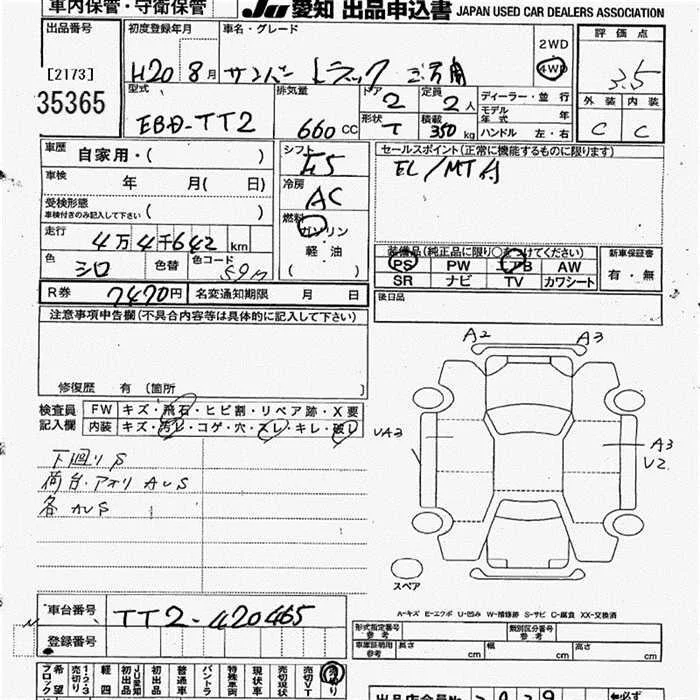 車内保管・守衛保管
JU 愛知 出品申込書 JAPAN USED CAR DEALERS ASSOCIATION
出品番号
[2173]
35365
初度登録年月
H20 8月
車名・グレード
サンバー トラック 三方開
2WD
4WD
評価点
3.5
外装 内装
C C
型式
EBD-TT2
排気量
660 CC
ドア
2
定員
2人
形状
T
積載
350 kg
ディーラー・並行
モデル年式 年
ハンドル 左・右
車歴 自家用・( )
車検 年 月( 日)
受検形態
車検付きのみ記入して下さい ( )
走行 4万4千642 km
色 シロ 色替 色コード
R券 7470円 名変通知期限 月 日
シフト
F5
冷房
AC
燃料
ガソリン
・
軽油
( )
セールスポイント(正常に機能するものに限ります)
EL/MT付
装備品(純正品に限り○をつけてください)
PS PW エアB AW
SR ナビ TV カワシート
新車保証書
有・無
後日品
注意事項申告欄(不具合内容等は具体的に記入して下さい)
修復歴 有 〔箇所 〕
検査員記入欄
FW キズ・飛石・ヒビ割・リペア跡・X要
内装 キズ・汚レ・コゲ・穴・スレ・キレ・破レ
下廻りS
荷台・アオリAUS
各AUS
A2 A3
UA3
A3
U2
スペア
A-キズ E-エクボ U-凹み W-補修跡 S-サビ C-腐食 XX-交換済
車台番号 TT2-420465
登録番号
形式指定番号
参考
類別区分番号
参考
車庫証明用
参考
長さ 幅 高さ
希望ブロック
売切り
1・2・3
軽四
JU愛知
初出品
初出品
普通車
バントラ
特殊車両
現状車
売切現状
売切りT
売切り
出品店会員No.
無必ず